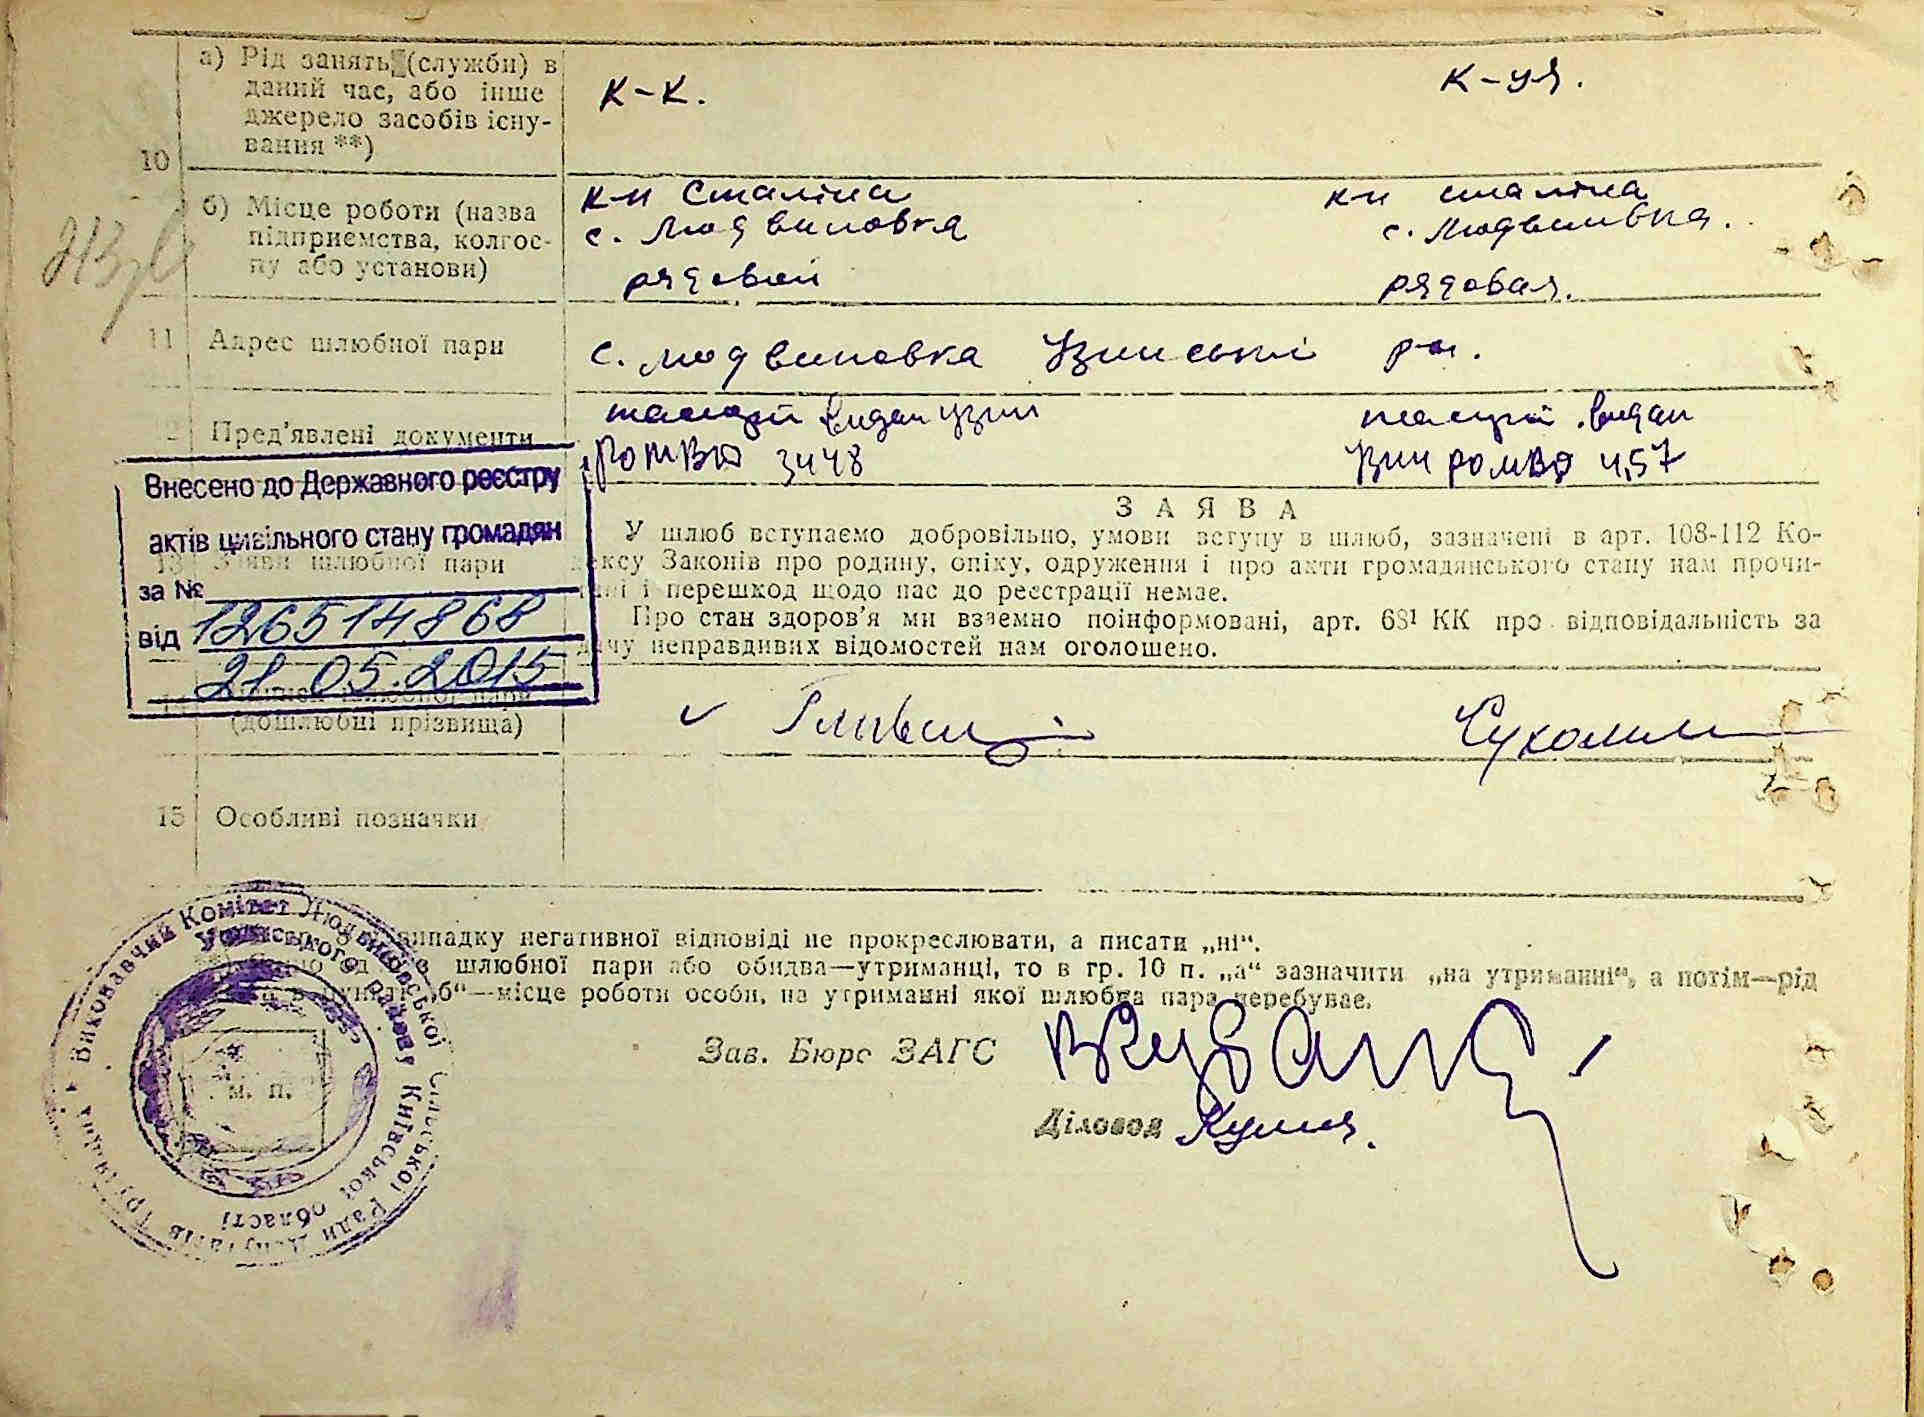 10
а) Рід занять (служби) в
даний час, або інше
джерело засобів існу-
вання **)
к-к.
к-ця.
б) Місце роботи (назва
підприємства, колгос-
пу або установи)
к-п Сталіна
с. Людвиновка
рядовой
к-п сталіна
с. Людвинвка.
рядовая.
11 Адрес шлюбної пари
с. Людвиновка Узинські р-н.
12 Пред'явлені документи
паспорт видан Узин
РОМВД 3448
видан
РОМВД 457
Внесено до Державного реєстру
актів цивільного стану громадян
за №
126514868
від
21.05.2015
13 Заяви шлюбної пари
ЗАЯВА
У шлюб вступаємо добровільно, умови вступу в шлюб, зазначені в арт. 108-112 Ко-
дексу Законів про родину, опіку, одруження і про акти громадянського стану нам прочи-
тані і перешкод щодо нас до реєстрації немає.
Про стан здоров'я ми взаємно поінформовані, арт. 68¹ КК про відповідальність за
дачу неправдивих відомостей нам оголошено.
14
шлюбної пари
(дошлюбні прізвища)
Сухомли
15 Особливі позначки
випадку негативної відповіді не прокреслювати, а писати „ні“.
шлюбної пари або обидва—утриманці, то в гр. 10 п. „а“ зазначити „на утриманні“, а потім—рід
„б“—місце роботи особи, на утриманні якої шлюбна пара перебуває.
Зав. Бюро ЗАГС
Діловод
Виконавчий Комітет Людвинівської Сільської Ради Депутатів Трудящих
Узинського району Київської області
м. п.